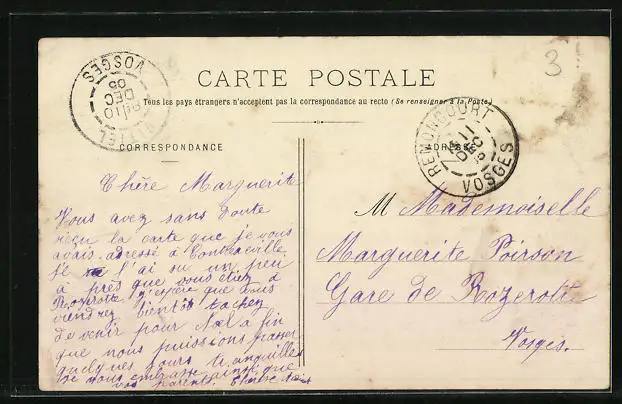 3
CARTE POSTALE
Tous les pays étrangers n'acceptent pas la correspondance au recto (Se renseigner à la Poste)
VITTEL
10
DEC
05
VOSGES
REMONCOURT
11
DEC
VOSGES
CORRESPONDANCE
ADRESSE
Chère Marguerite
Vous avez sans doute
reçu la carte que je vous
avais adressé à Contrexeville
je l'ai su un peu
à près que vous étiez à
Rozerotte j'espère que vous
viendrez bientôt tachez
de venir pour Noël a fin
que nous puissions passer
quelques jours tranquilles
je vous embrasse ainsi que
vos parents.
M Mademoiselle
Marguerite Poirson
Gare de Rozerotte
Vosges.